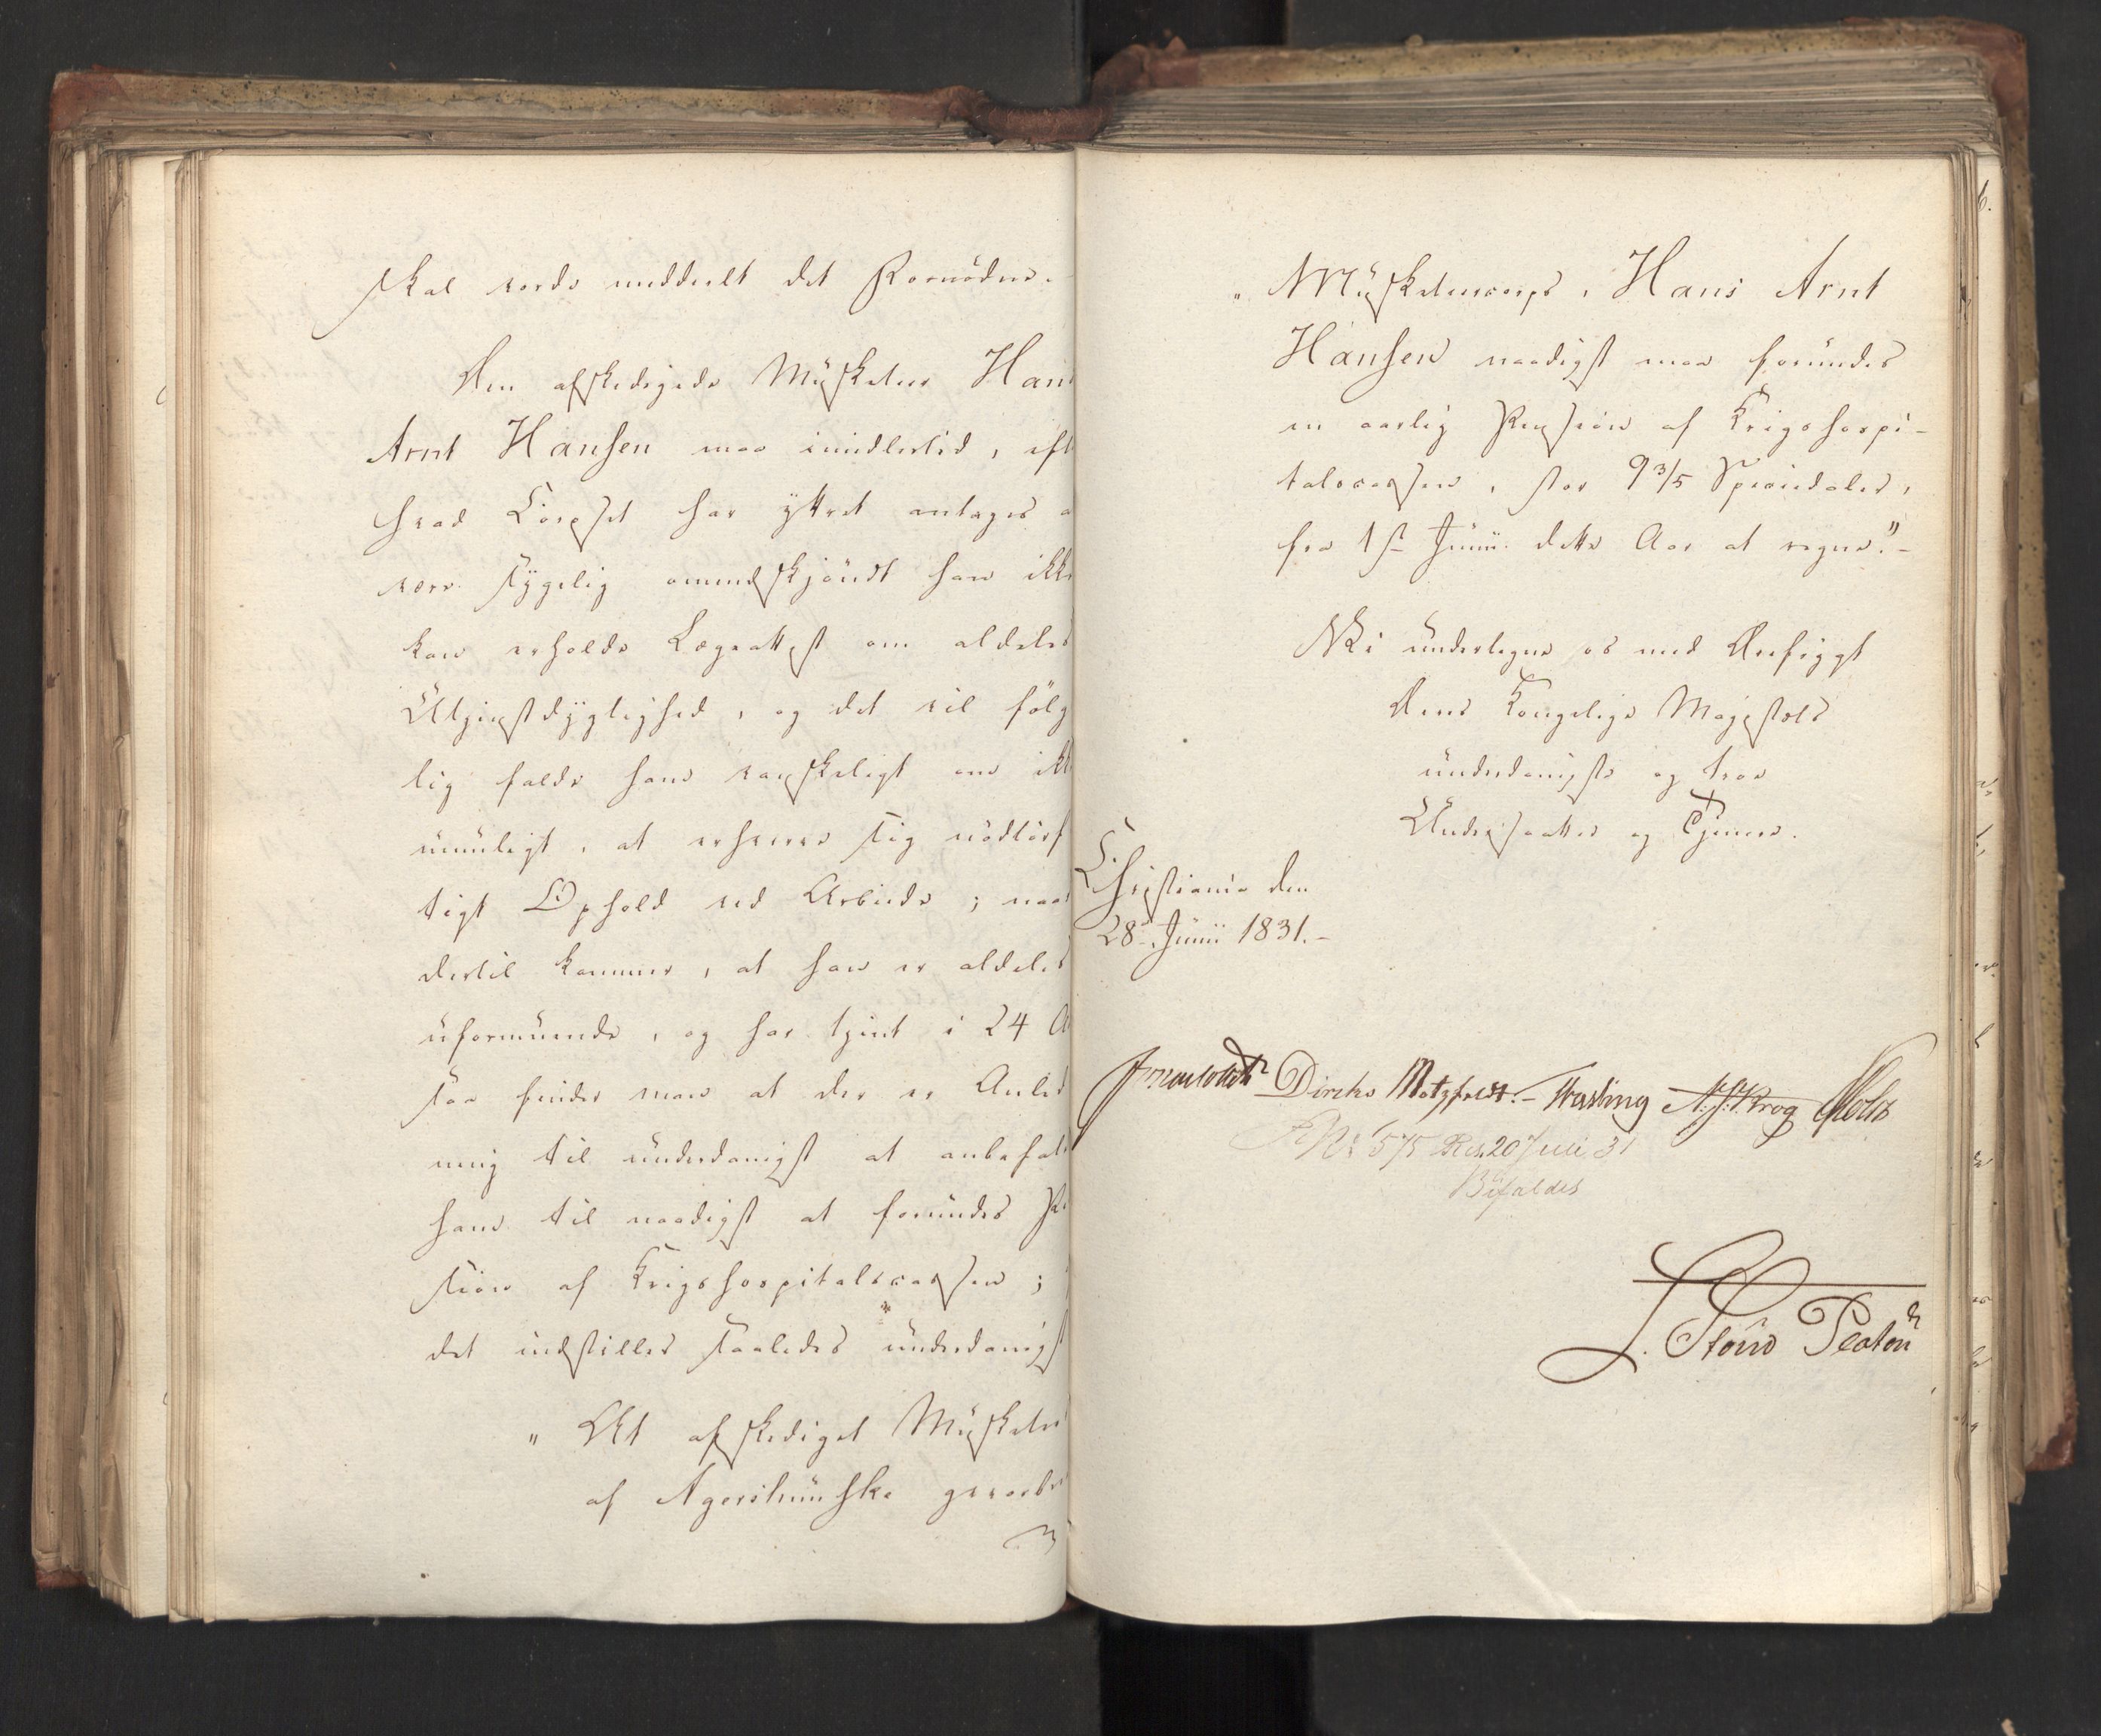 skal vorde meddeelt det Fornødne.
Den afskedigede Musketeer Hans
Arnt Hansen maa imidlertid, eft
hvad Corpset har yttret antages a
være sygelig omendskjøndt han ikke
kan erholde Lægeattest om aldeles
Utjenstdygtighed, og det vil følg
lig falde ham vanskeligt om ikk
umuligt, at erhverve sig nødtørf
tigt Ophold ved Arbeide; naar
dertil kommer, at han er aldeles
uformuende, og har tjent i 24 A
saa finder man at der er Anled
ning til underdanigst at anbefale
ham til naadigst at forundes Pe
sion af Krigshospitalscassen;
det indstilles saaledes underdanigst
„ At afskediget Musketeer
af Agershuusske gevorbne
„ Musketeercorps, Hans Arnt
Hansen naadigst maa forundes
en aarlig Pension af Krigshospi-
talscassen, stor 9 3/5 Speciedaler,
fra 1ste Junii dette Aar at regne." -
Vi undertegne os med Ærefrygt
Deres Kongelige Majestæts
underdanigste og troe
Undersaatter og Tjenere.
Christiania den
28de Junii 1831. -
Diriks Motzfeldt. - Fasting Krog Holst
No 575 Res. 20 Juli 31
Bifaldes
Stoud Platou